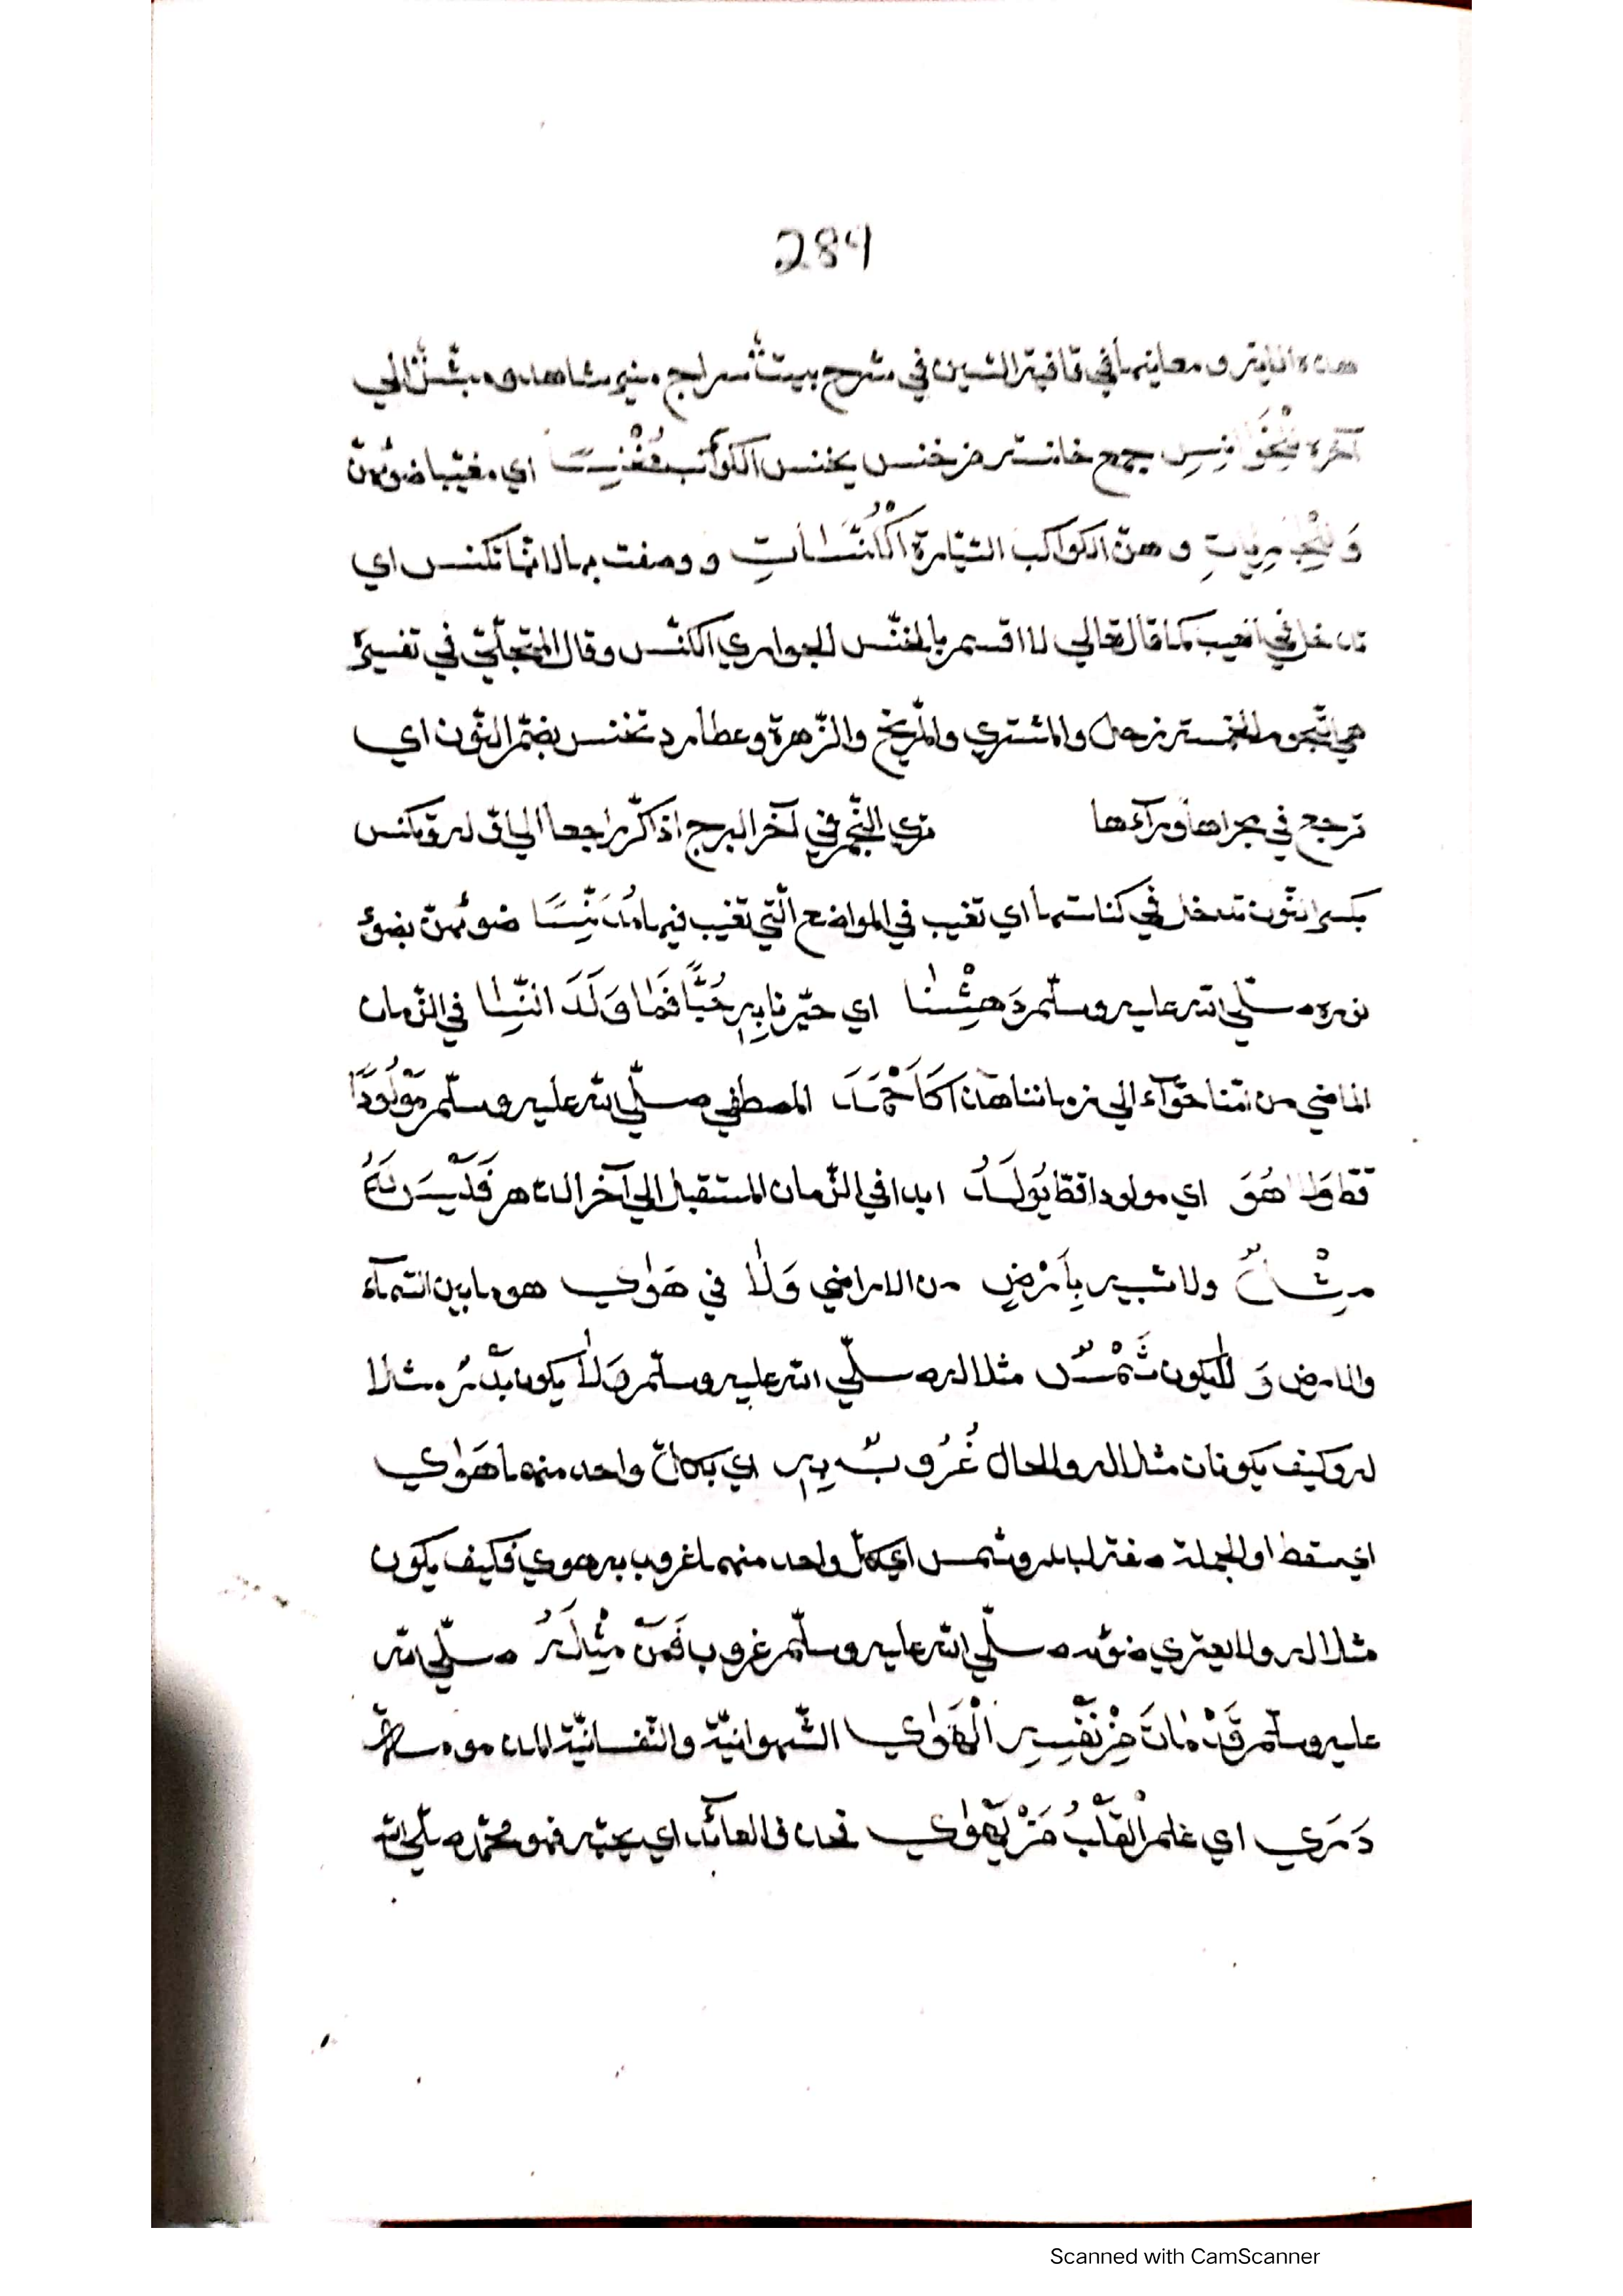 289
هذه الاية ومعانيها في قافية الشين في شرح بيت سراج منير شاهد ومبشّر الي
آخره جمع خانسة من خنس يخنس الكواكب مُخْنِسًا اي مغيّبا ضوئهنّ
وَ وهنّ الكواكب السّيّارة اَلْكُنَّسَاتِ ووصفت بها لانّها تكنس اي
تدخل في المغيب كما قال تعالي لا اقسم بالخنّس الجواري الكنّس وقال المحلّيّ في تفسيره
هي النّجوم الخمسة زحل والمشتري والمرّيخ والزّهرة وعطارد تخنس بضمّ النّون اي
ترجع في مجراها ورآءها تري النّجم في آخر البرج اذ اكرّ راجعا الي اوّله وتكنس
بكسر النّون تدخل في كناستها اي تغيب في المواضع الّتي تغيب فيها مُدَنِّسًا ضوئهنّ بضوء
نوره صلّي الله عليه وسلّم دَهِشْنَا اي حيّرنا بِهِ حُبًّا فَمَا وَلَدَ النِّسَا في الزّمان
الماضي من امّنا حوّآء الي زماننا هذا كَاَحْمَدَ المصطفي صلّي الله عليه وسلّم مَوْلُودًا
قطّ وَلَا هُوَ اي مولودا قطّ يُولَدُ ابدا في الزّمان المستقبل الي آخر الدّهر فَلَيْسَ لَهُ
مِثْلٌ ولا شبيه بِأَرْضٍ من الاراضي وَلَا في هَوَاي هو ما بين السّمآء
والارض وَ لا يكون شَمْسٌ مثلا له صلّي الله عليه وسلّم وَلَا يكون بَدْرٌ مثلا
له وكيف يكونان مثلا له والحال غُرُوبٌ بِهِ اي بكلّ واحد منهما هَوَاي
اي سقط او الجملة صفة لبدر وشمس اي كلّ واحد منهما غروب به هوي فكيف يكون
مثلا له ولا يعتري ضوئه صلّي الله عليه وسلّم غروب فَمَنْ مِثْلُهُ صلّي الله
عليه وسلّم قَدْ مَاتَ مِنْ نَفْسِهِ الْهَوَاي الشّهوانيّة والنّفسانيّة
دَرَي اي علم الْقَلْبُ مَنْ يَهْوَاي فحذف العائد اي يحبّه فهو محمّد صلّي الله
Scanned with CamScanner